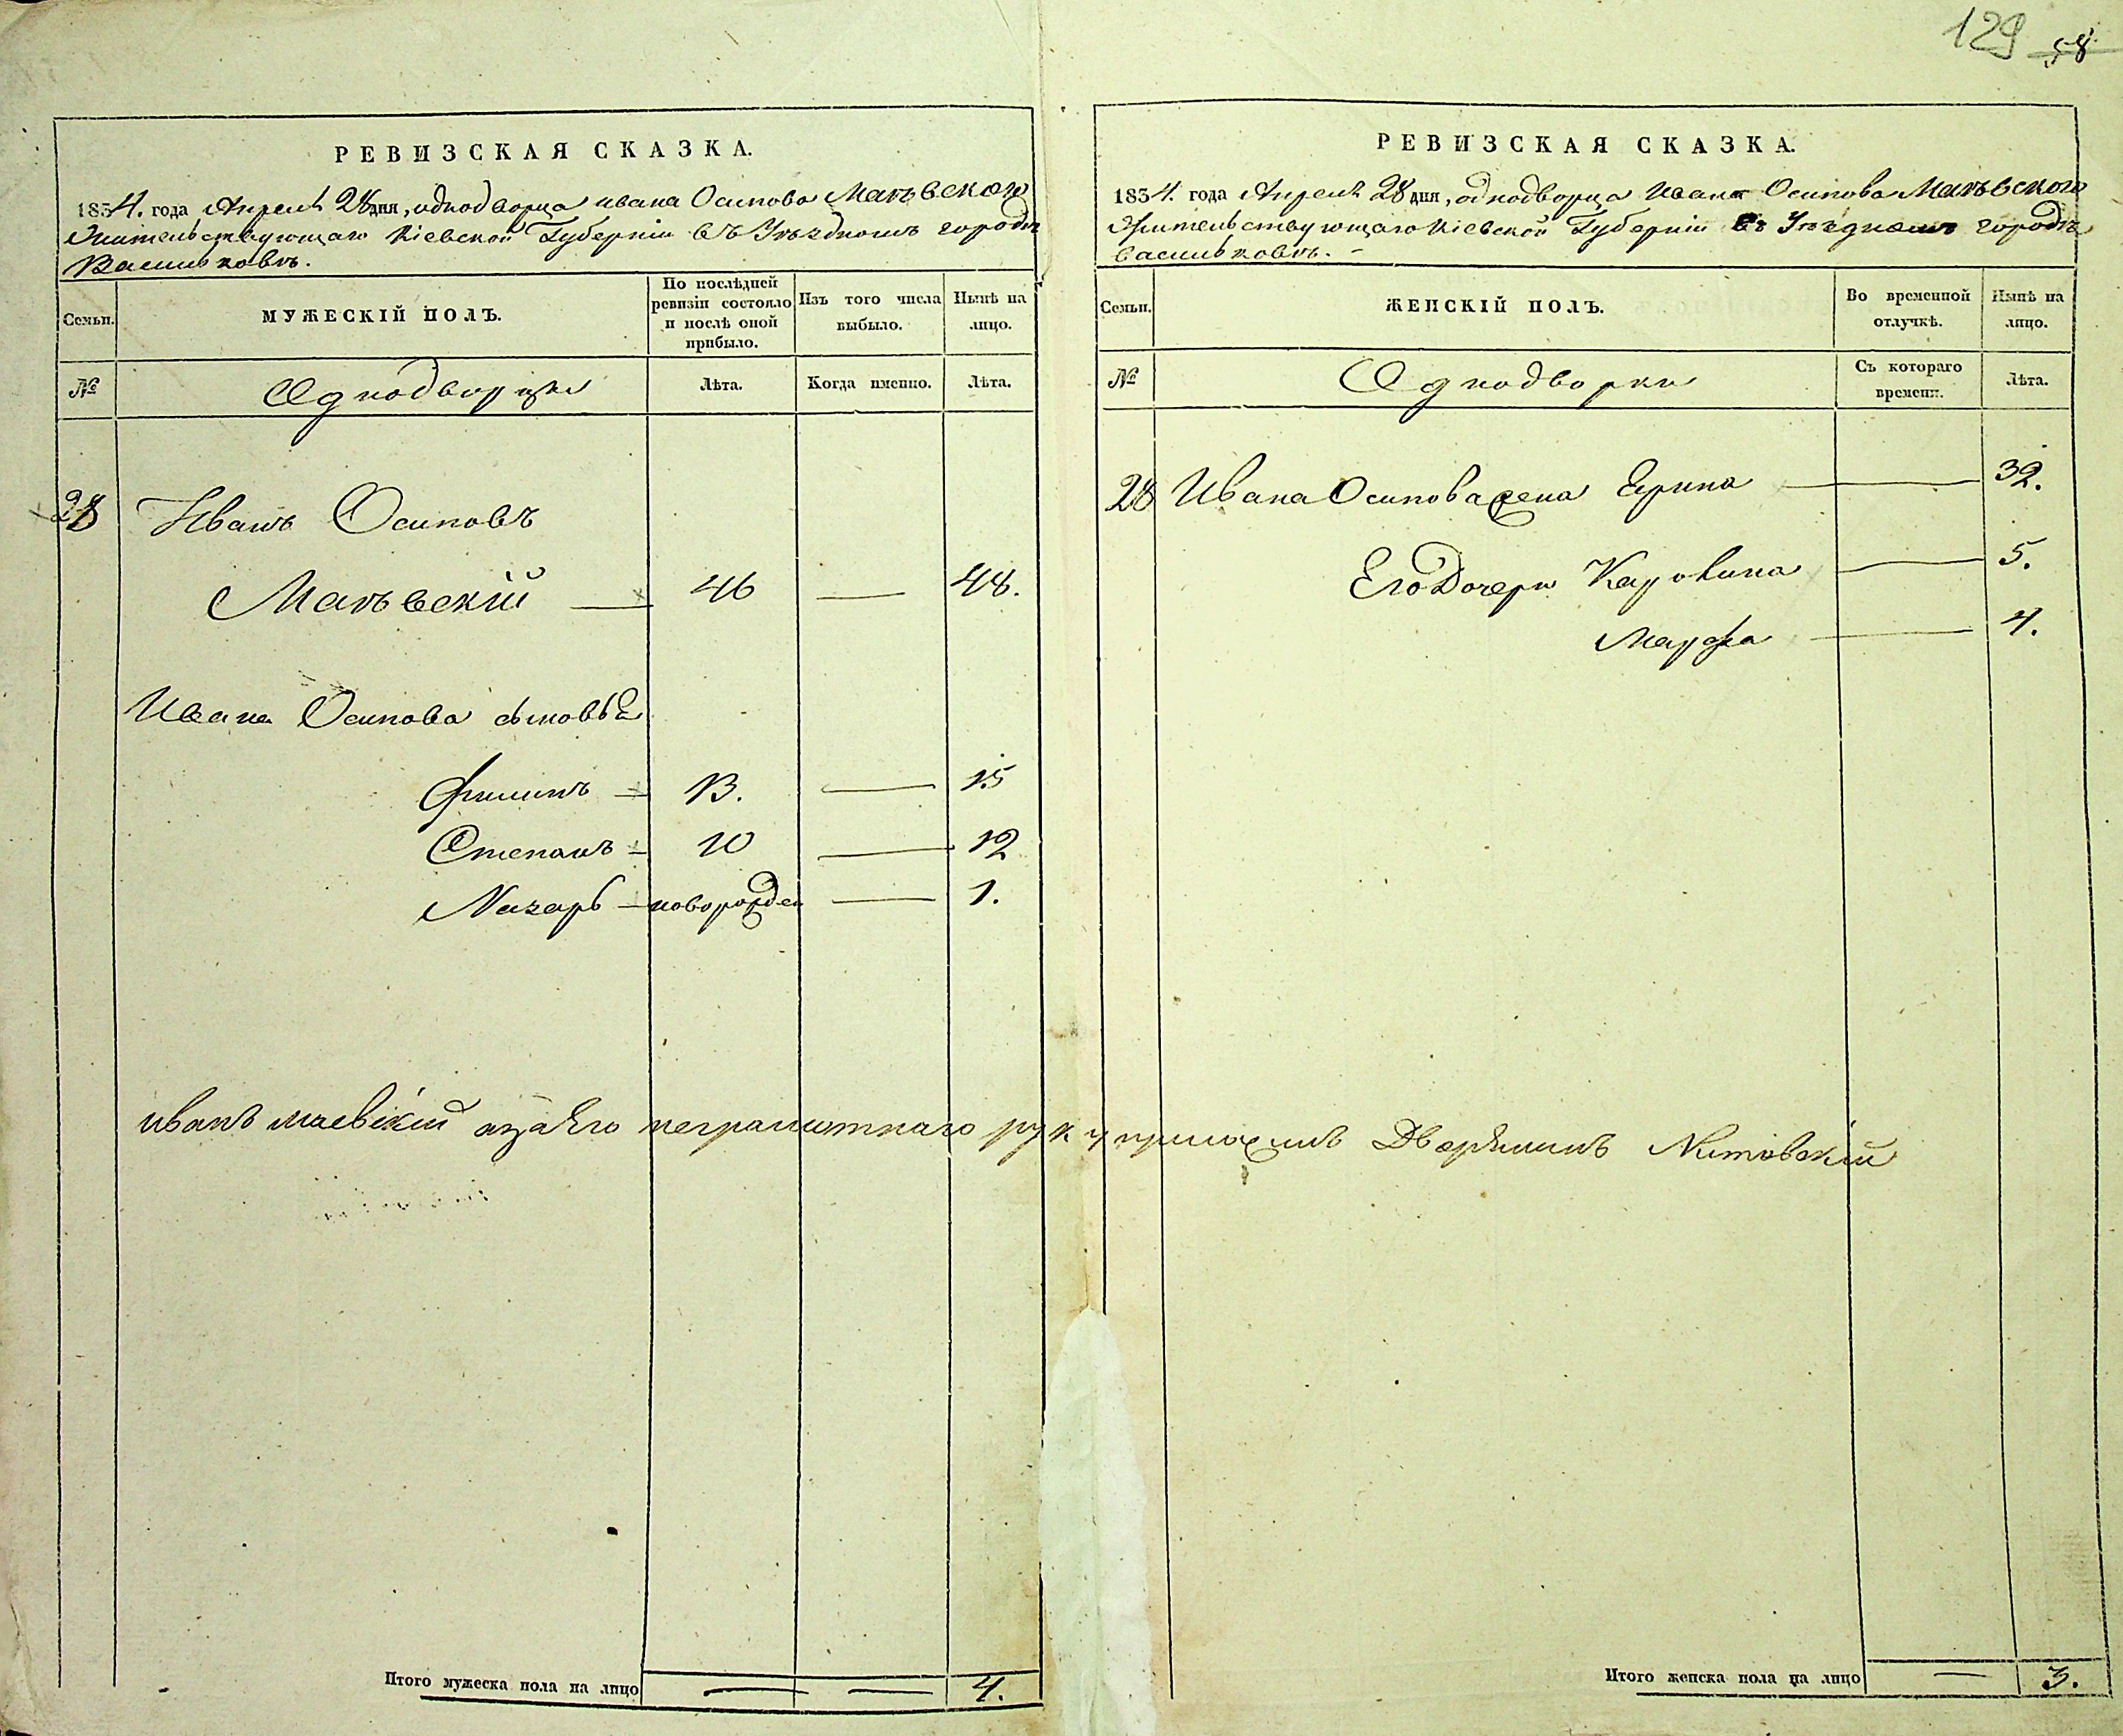 129 58
РЕВИЗСКАЯ СКАЗКА.
1854. года Апреля 28 дня, однодворца ивана Осипова Маѣвского
Жительствующаго Кіевской Губерніи въ Уѣздномъ городѣ
Василковѣ.
Семьи.
МУЖЕСКІЙ ПОЛЪ.
По послѣдней
ревизіи состояло
и послѣ оной
прибыло.
Изъ того числа
выбыло.
Нынѣ на
лицо.
№
Однодворцы
Лѣта.
Когда именно.
Лѣта.
28 Иванъ Осиповъ
Маѣвскій — 46 — 48.
Ивана Осипова сыновья
Филипъ — 13. — 15
Степанъ — 10 — 12
Назарь — новорожден — 1.
иванъ маевскій а за его неграмотнаго руку приложилъ Дворянинъ
Итого мужеска пола на лицо — — 4.
РЕВИЗСКАЯ СКАЗКА.
1854. года Апреля 28 дня, однодворца Ивана Осипова Маѣвского
Жительствующаго Кіевской Губерніи въ Уѣздномъ городѣ
Василковѣ. —
Семьи.
ЖЕНСКІЙ ПОЛЪ.
Во временной
отлучкѣ.
Нынѣ на
лицо.
№
Однодворки
Съ котораго
времени.
Лѣта.
28 Ивана Осипова жена Ерина — 32.
Его Дочери Каролина — 5.
Марфа — 4.
Итого женска пола на лицо — 3.